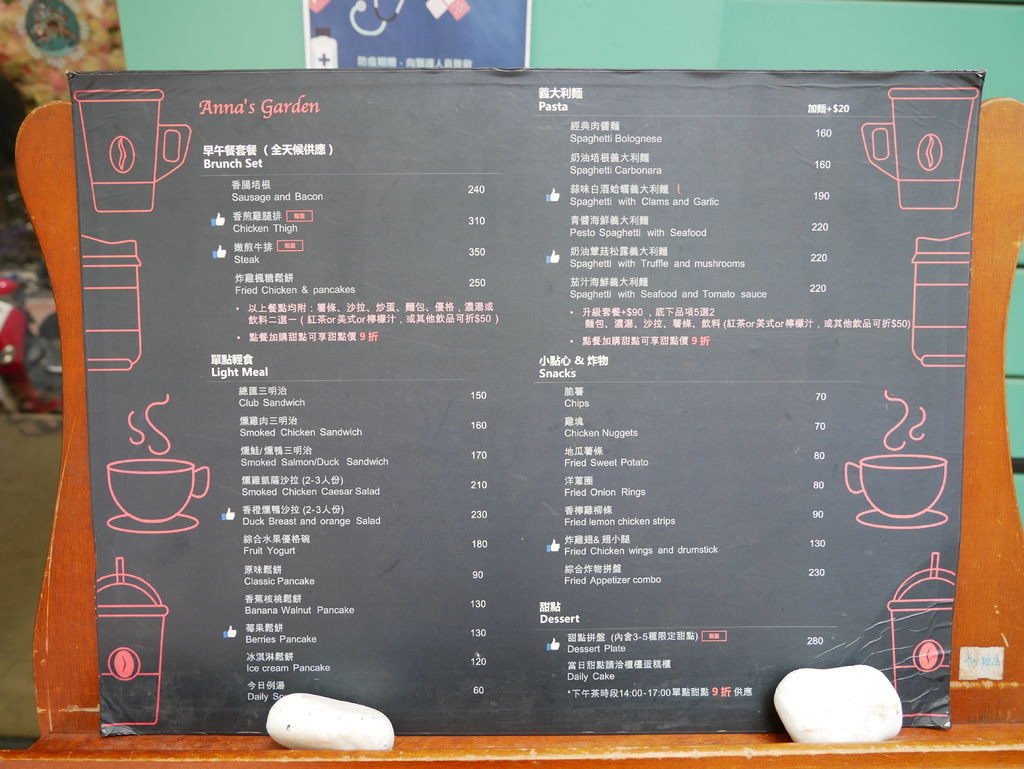 防疫期間，向醫護人員致敬
Anna's Garden
早午餐套餐（全天候供應）
Brunch Set
香腸培根
Sausage and Bacon 240
香煎雞腿排 限量
Chicken Thigh 310
嫩煎牛排 限量
Steak 350
炸雞楓糖鬆餅
Fried Chicken & pancakes 250
• 以上餐點均附：薯條、沙拉、炒蛋、麵包、優格，濃湯或
飲料二選一（紅茶or美式or檸檬汁，或其他飲品可折$50）
• 點餐加購甜點可享甜點價 9 折
單點輕食
Light Meal
總匯三明治
Club Sandwich 150
燻雞肉三明治
Smoked Chicken Sandwich 160
燻鮭/燻鴨三明治
Smoked Salmon/Duck Sandwich 170
燻雞凱薩沙拉 (2-3人份)
Smoked Chicken Caesar Salad 210
香橙燻鴨沙拉 (2-3人份)
Duck Breast and orange Salad 230
綜合水果優格碗
Fruit Yogurt 180
原味鬆餅
Classic Pancake 90
香蕉核桃鬆餅
Banana Walnut Pancake 130
莓果鬆餅
Berries Pancake 130
冰淇淋鬆餅
Ice cream Pancake 120
今日例湯
Daily 60
義大利麵
Pasta 加麵+$20
經典肉醬麵
Spaghetti Bolognese 160
奶油培根義大利麵
Spaghetti Carbonara 160
蒜味白酒蛤蠣義大利麵
Spaghetti with Clams and Garlic 190
青醬海鮮義大利麵
Pesto Spaghetti with Seafood 220
奶油蕈菇松露義大利麵
Spaghetti with Truffle and mushrooms 220
茄汁海鮮義大利麵
Spaghetti with Seafood and Tomato sauce 220
• 升級套餐+$90，底下品項5選2
麵包、濃湯、沙拉、薯條、飲料 (紅茶or美式or檸檬汁，或其他飲品可折$50)
• 點餐加購甜點可享甜點價 9 折
小點心 & 炸物
Snacks
脆薯
Chips 70
雞塊
Chicken Nuggets 70
地瓜薯條
Fried Sweet Potato 80
洋蔥圈
Fried Onion Rings 80
香檸雞柳條
Fried lemon chicken strips 90
炸雞翅& 翅小腿
Fried Chicken wings and drumstick 130
綜合炸物拼盤
Fried Appetizer combo 230
甜點
Dessert
甜點拼盤 (內含3-5種限定甜點) 限量
Dessert Plate 280
當日甜點請洽櫃檯蛋糕櫃
Daily Cake
*下午茶時段14:00-17:00單點甜點 9 折 供應